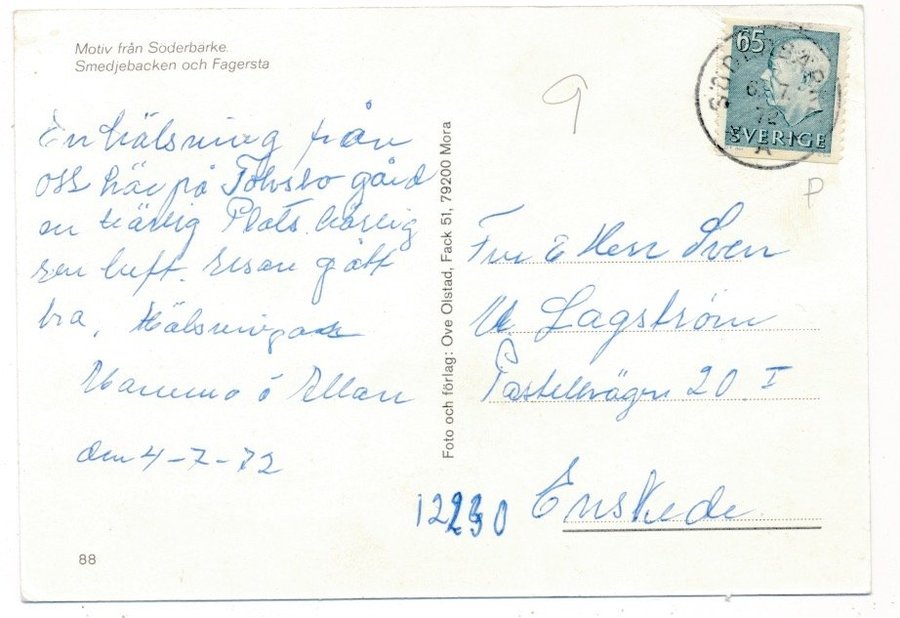 Motiv från Söderbärke.
Smedjebacken och Fagersta
En hälsning från
oss här på Tolvsbo gård
en härlig Plats. härlig
ren luft. resan gått
bra, Hälsningar
Mamma ó Allan
den 4-7-72
88
Foto och förlag: Ove Olstad, Fack 51, 79200 Mora
9
65
SVERIGE
SÖDERBÄRKE
7
72
A
P
Fru & Herr Sven
Lagström
Pastellvägen 20 I
12230 Enskede